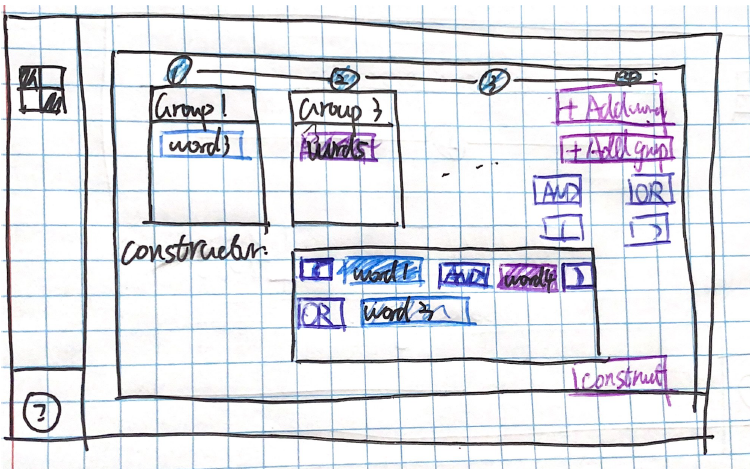 1 2 3
Group 1 Group 3 + Add word
word3 word5 + Add group
. . .
AND OR
( )
constructor:
( word1 AND word4 )
OR word3
construct
?